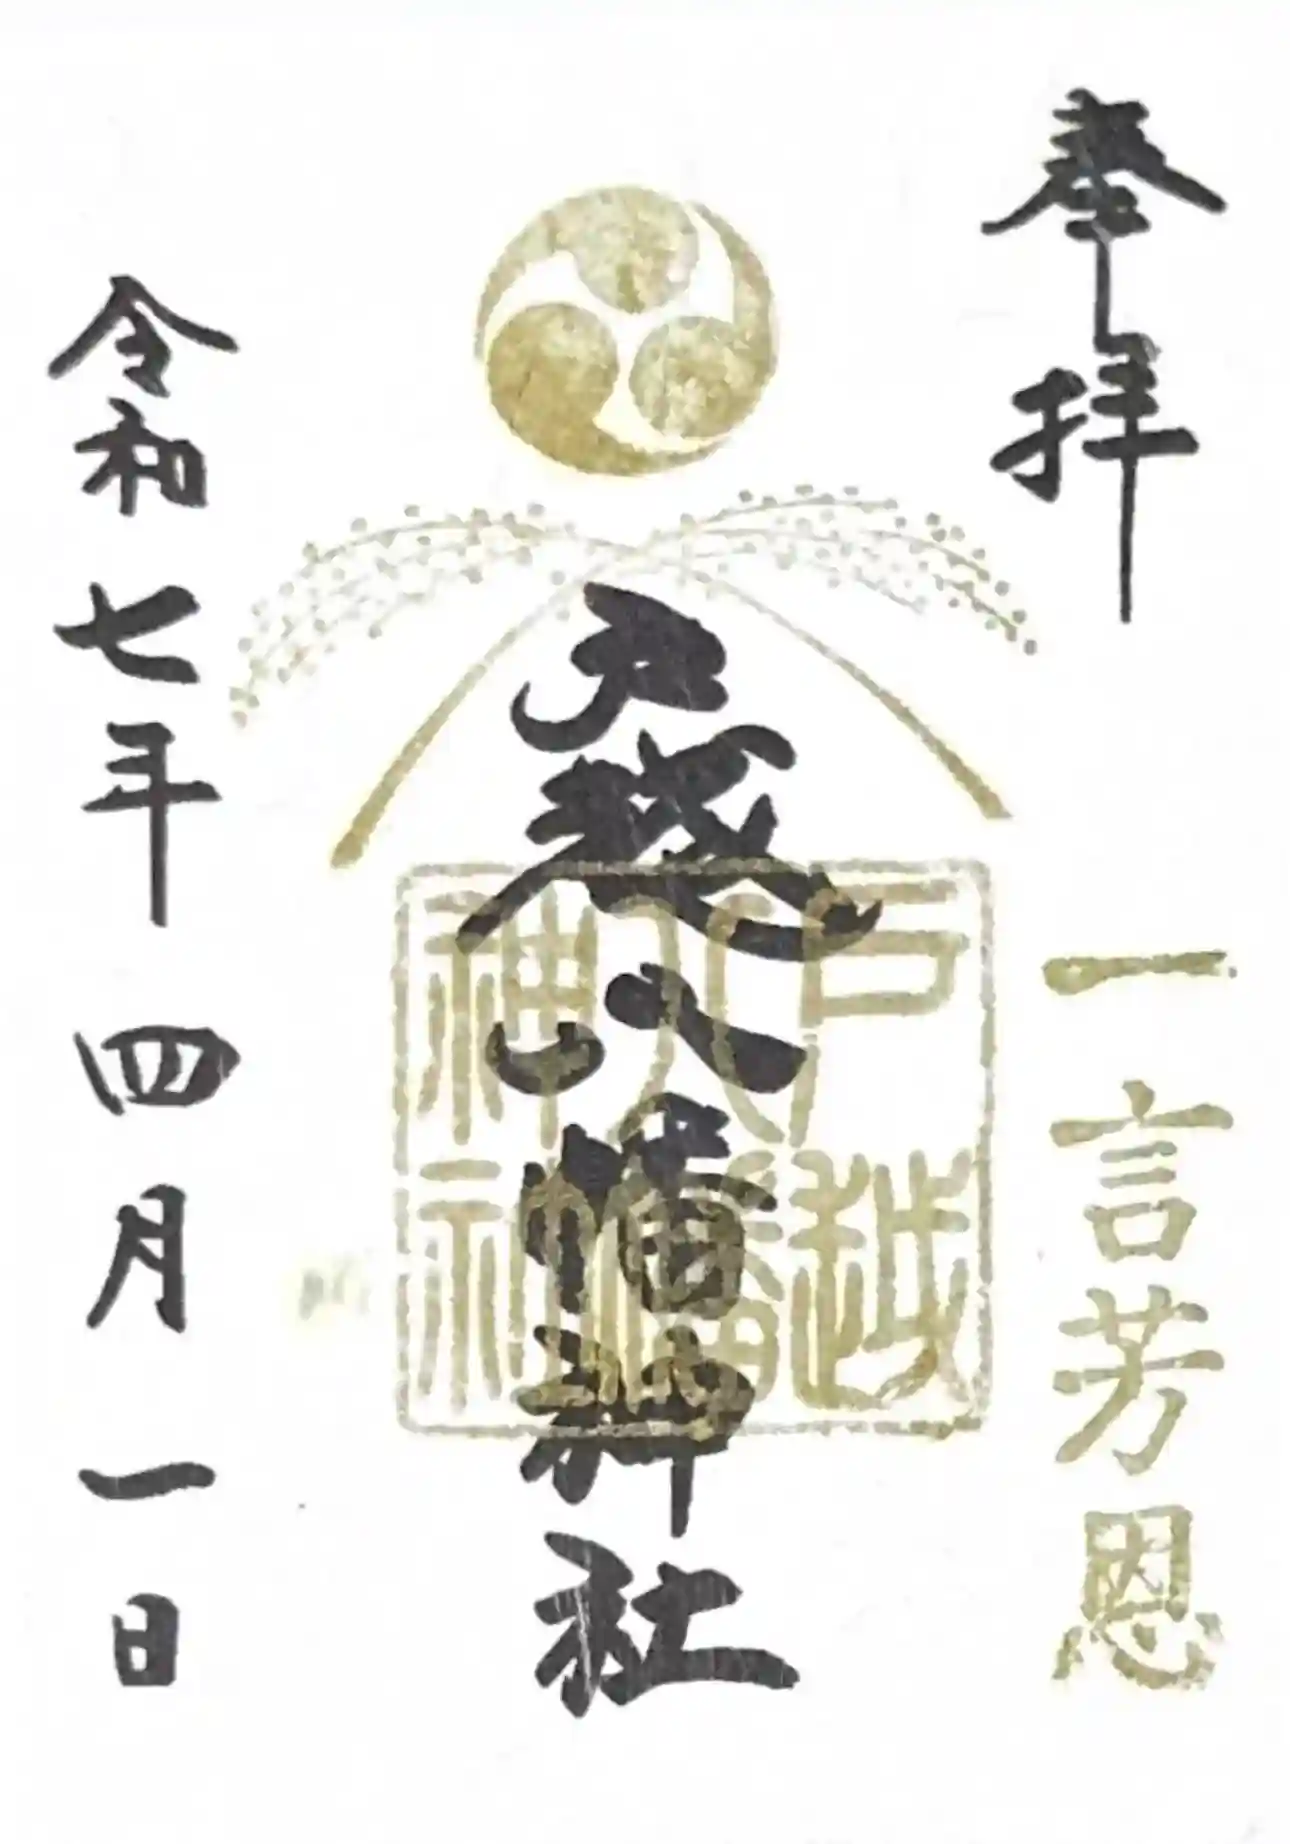 奉拝
一言芳恩
戸越八幡神社
戸越
八幡
神社
令和七年四月一日